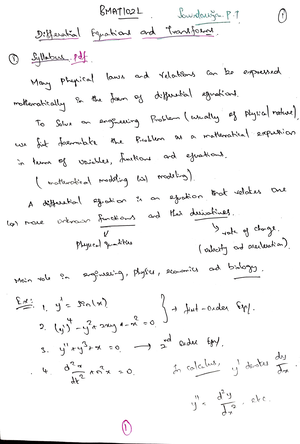 BMAT102L
Soundararajan. P. T
①
Differential Equations and Transforms.
① Syllabus pdf.
Many physical laws and relations can be expressed
mathematically in the form of differential equations.
To Solve an engineering Problem (usually of physical nature),
we first formulate the Problem as a mathematical expression
in terms of variables, functions and equations.
(mathematical modeling (or) modeling).
A differential equation is an equation that relates one
(or) more unknown functions and their derivatives.
Physical quantities
rate of change.
(velocity and acceleration).
Main role in engineering, physics, economics and biology.
Ex: 1. y' = sin(x)
2. (y')⁴ - y² + 2xy - x² = 0
} → first-order Eqn.
3. y'' + y³ + x = 0 → 2nd order Eqn.
4. d²x/dt² + n²x = 0.
In calculus, y' denotes dy/dx.
y'' = d²y/dx², etc.
①